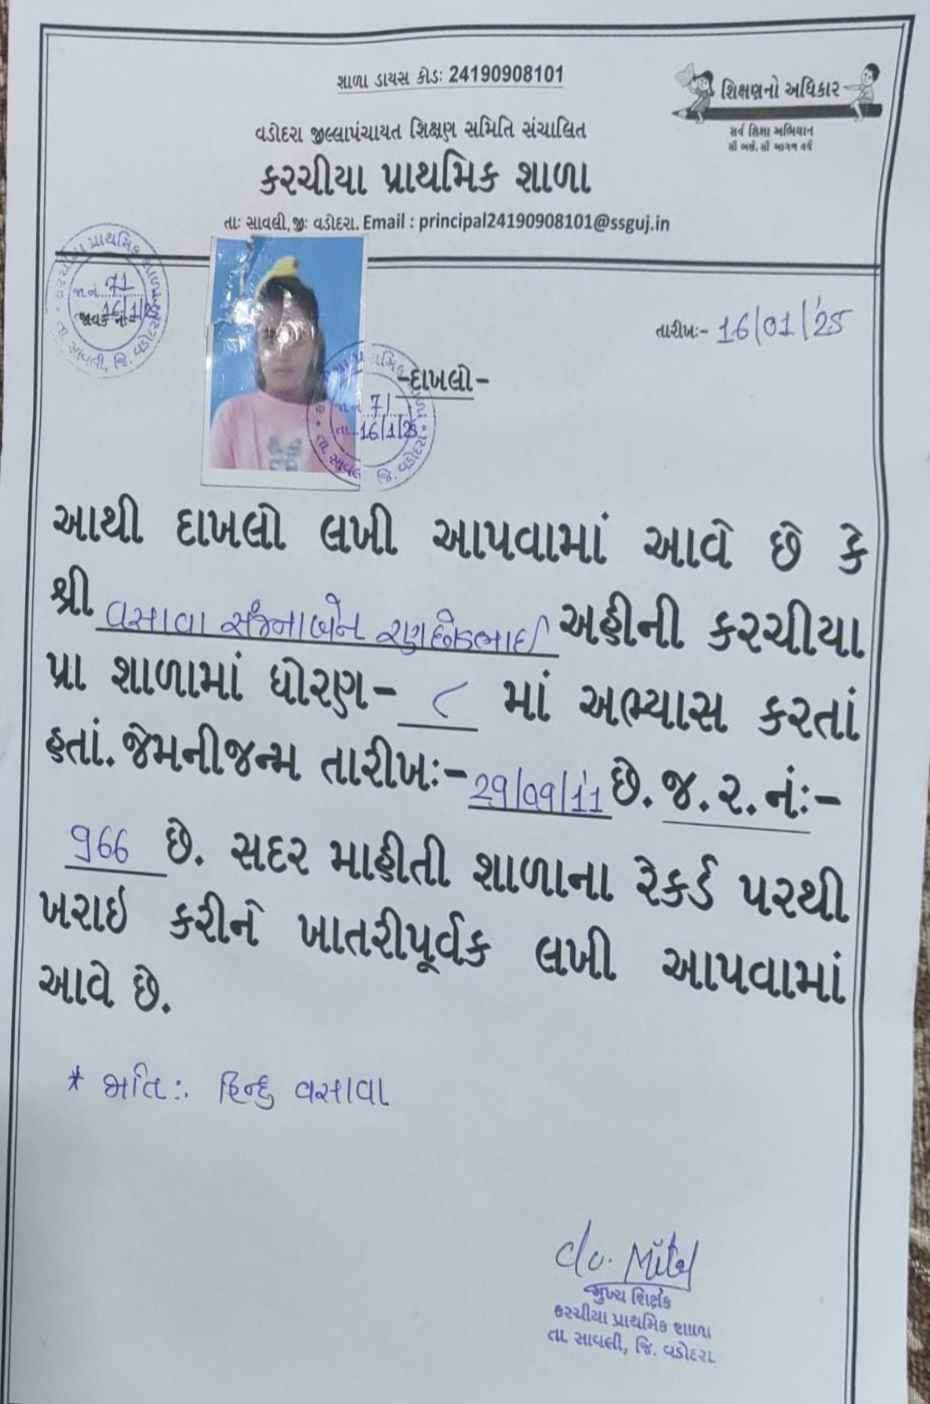 શાળા ડાયસ કોડ: 24190908101
શિક્ષણનો અધિકાર
સર્વ શિક્ષા અભિયાન
સૌ ભણે, સૌ આગળ વધે
વડોદરા જીલ્લાપંચાયત શિક્ષણ સમિતિ સંચાલિત
કરચીયા પ્રાથમિક શાળા
તા: સાવલી, જી: વડોદરા. Email : principal24190908101@ssguj.in
કરચીયા પ્રાથમિક શાળા
જા.નં. 71
જાવક નં. 16/1/25
તા. સાવલી, જિ. વડોદરા
તારીખ:- 16/01/'25
-દાખલો-
જા.નં 71
તા. 16/1/25
તા. સાવલી જિ. વડોદરા
આથી દાખલો લખી આપવામાં આવે છે કે
શ્રી વસાવા સંજનાબેન રણછોડભાઈ અહીની કરચીયા
પ્રા શાળામાં ધોરણ- ૮ માં અભ્યાસ કરતાં
હતાં. જેમનીજન્મ તારીખ:- 29/09/'11 છે. જ. ર. નં:-
966 છે. સદર માહીતી શાળાના રેકર્ડ પરથી
ખરાઇ કરીને ખાતરીપૂર્વક લખી આપવામાં
આવે છે.
* જાતિ:. હિન્દુ વસાવા
મુખ્ય શિક્ષક
કરચીયા પ્રાથમિક શાળા
તા. સાવલી, જિ. વડોદરા